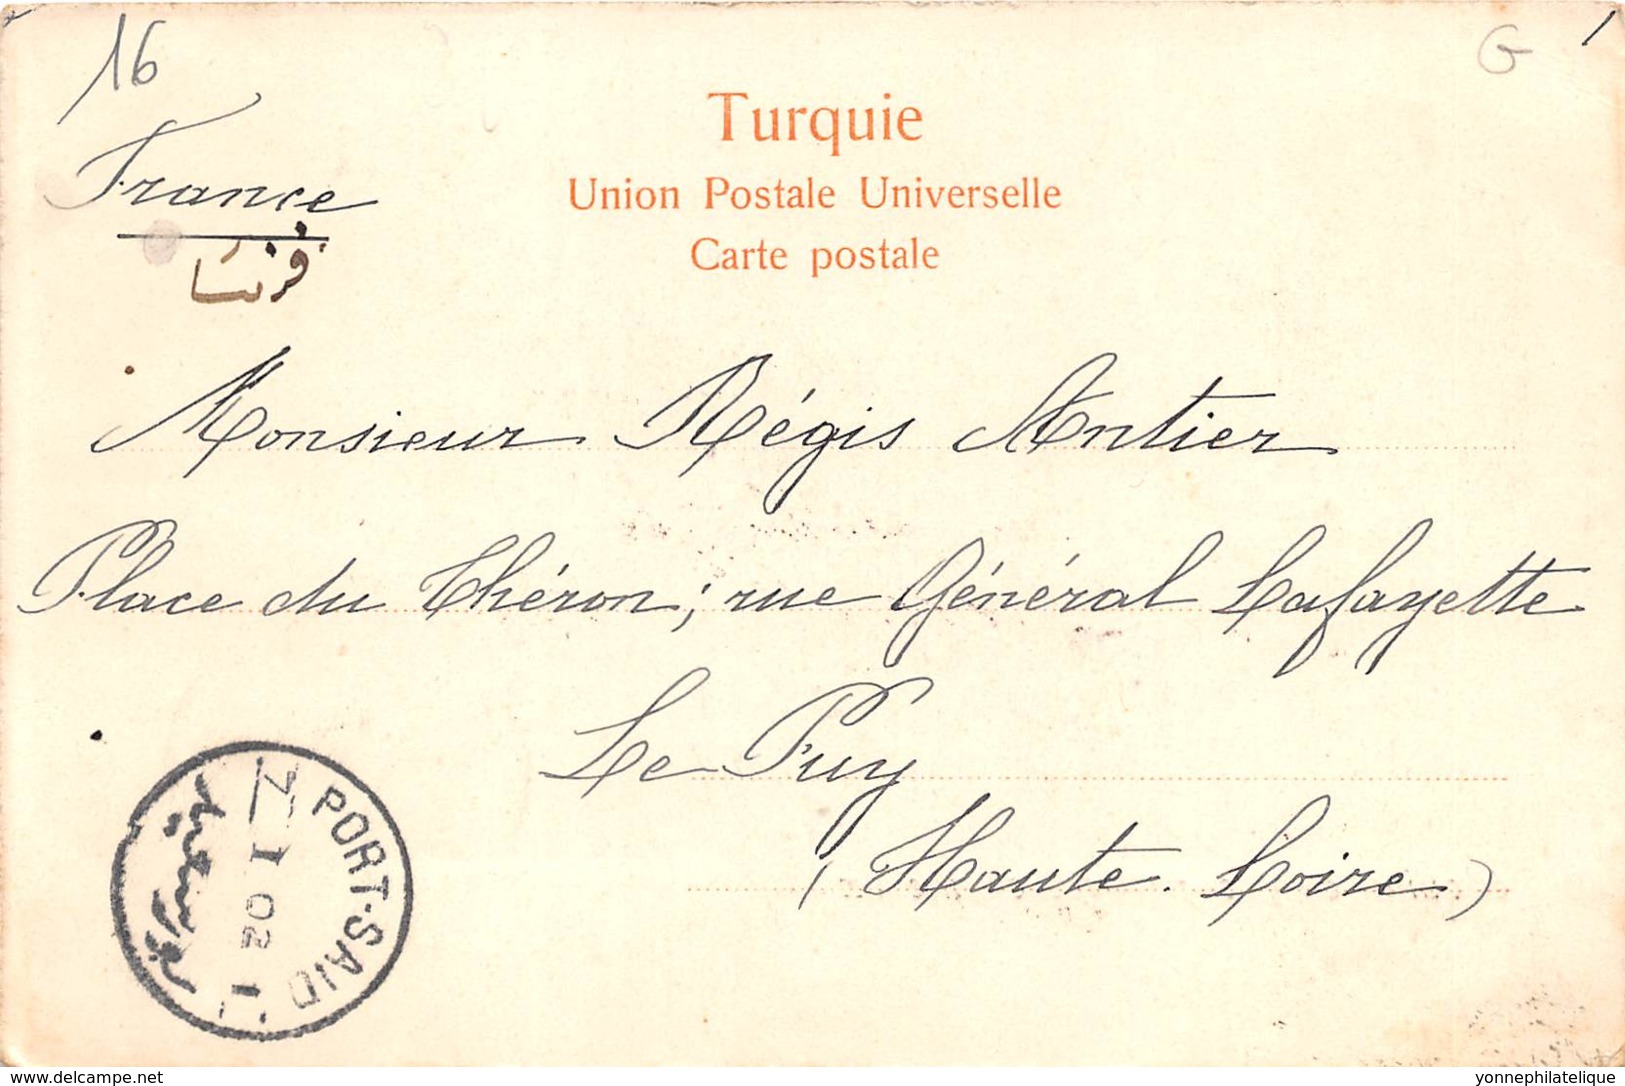 16
G
France
فرنسا
Turquie
Union Postale Universelle
Carte postale
Monsieur Régis Antier
Place du Théron; rue Général Lafayette
Le Puy
(Haute-Loire)
PORT-SAID
بورسعيد
I 02
I
delcampe.net
yonnephilatelique